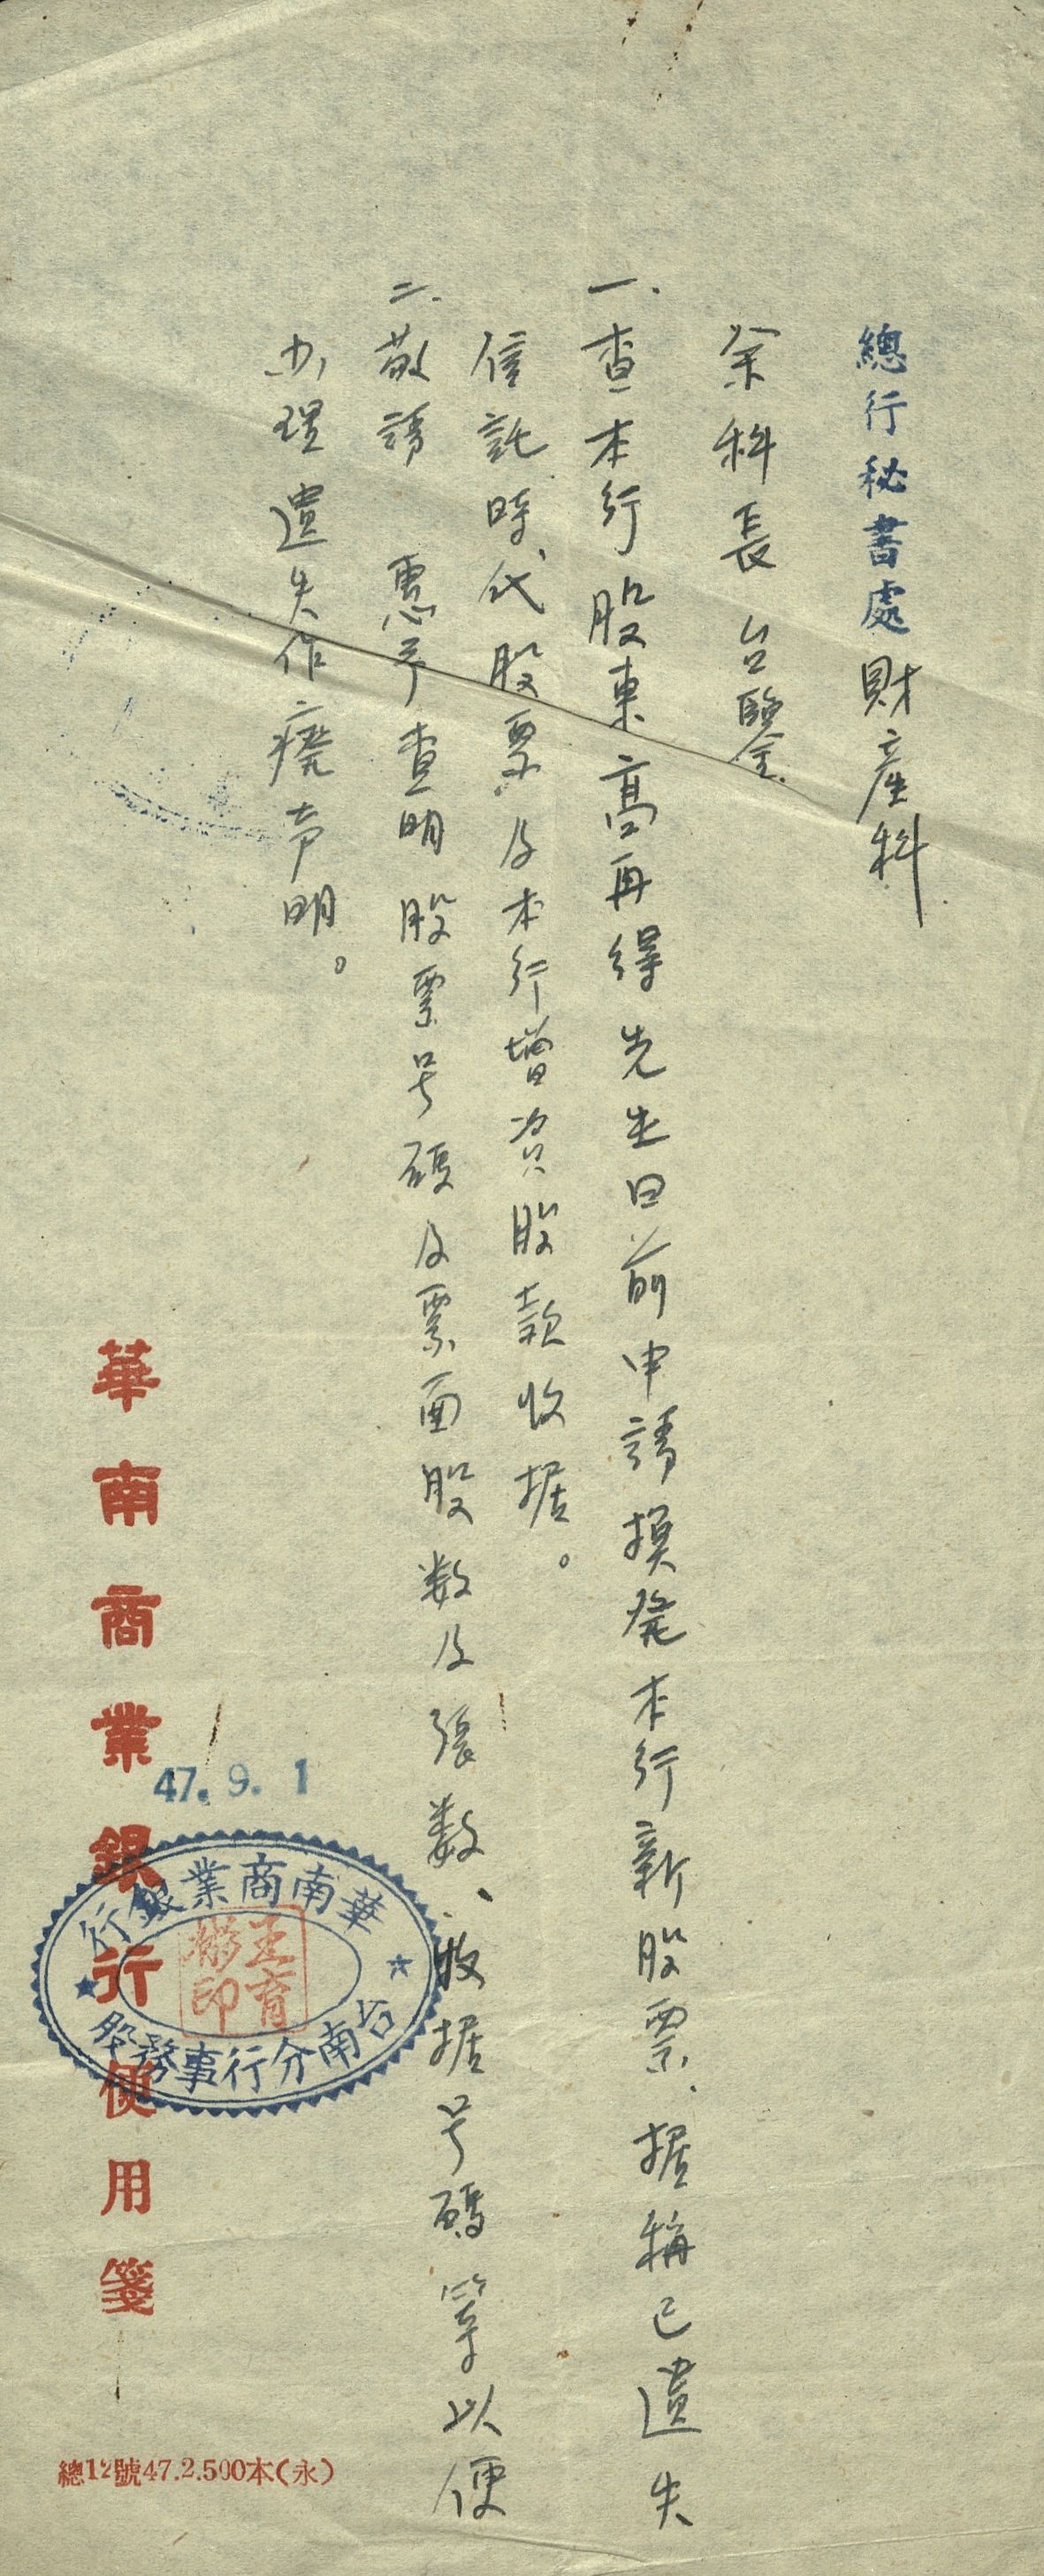 總行秘書處財產科
余科長 台鑒
一. 查本行股東高再得先生日前申請換発本行新股票、据稱已遺失
信託時代股票及本行增資股款收据。
二. 敬請 惠予查明股票号碼及票面股数及張数、收据号碼等以便
办理遺失作廢声明。
華南商業銀行便用箋
47. 9. 1
華南商業銀行
台南分行事務股
總12號47.2.500本(永)